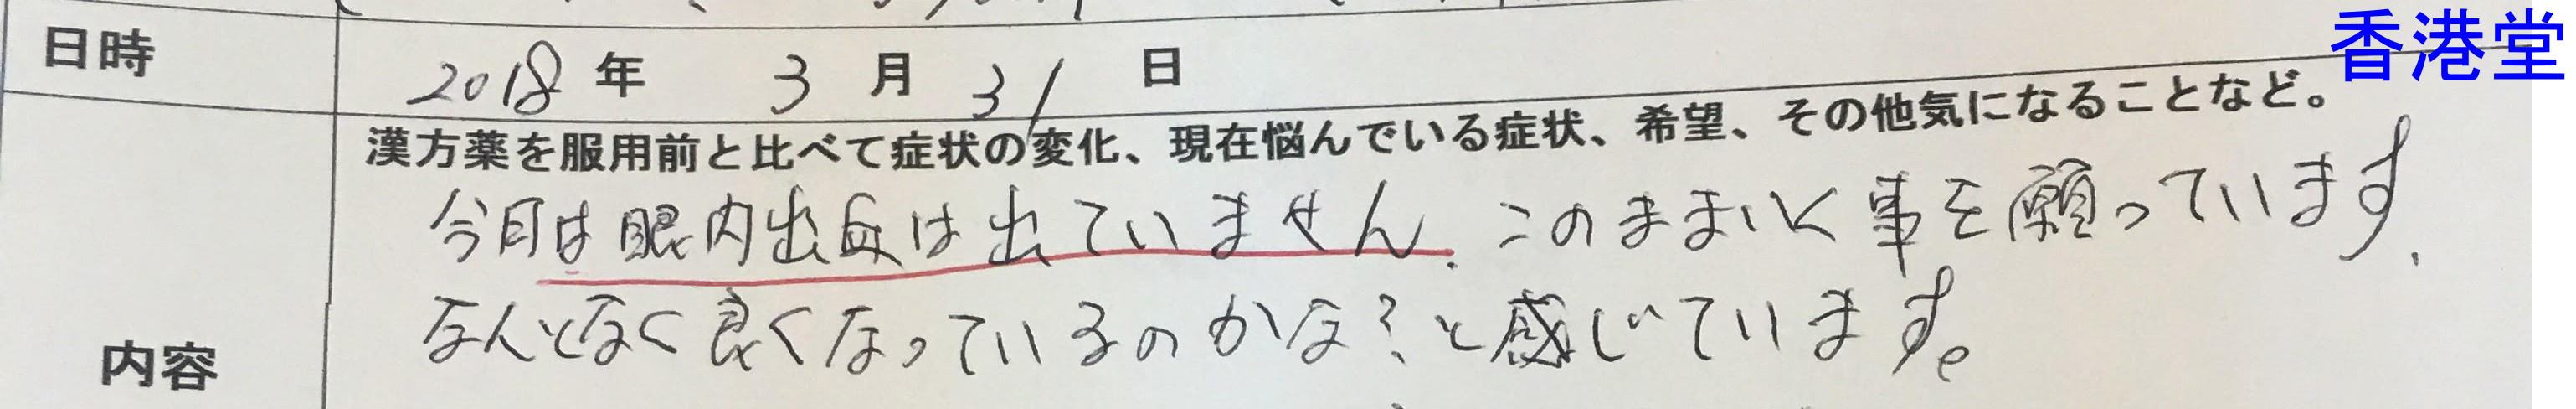 香港堂
日時 2018年 3月 31日
漢方薬を服用前と比べて症状の変化、現在悩んでいる症状、希望、その他気になることなど。
今月は眼内出血は出ていません。このままいく事を願っています。
なんとなく良くなっているのかな?と感じています。
内容